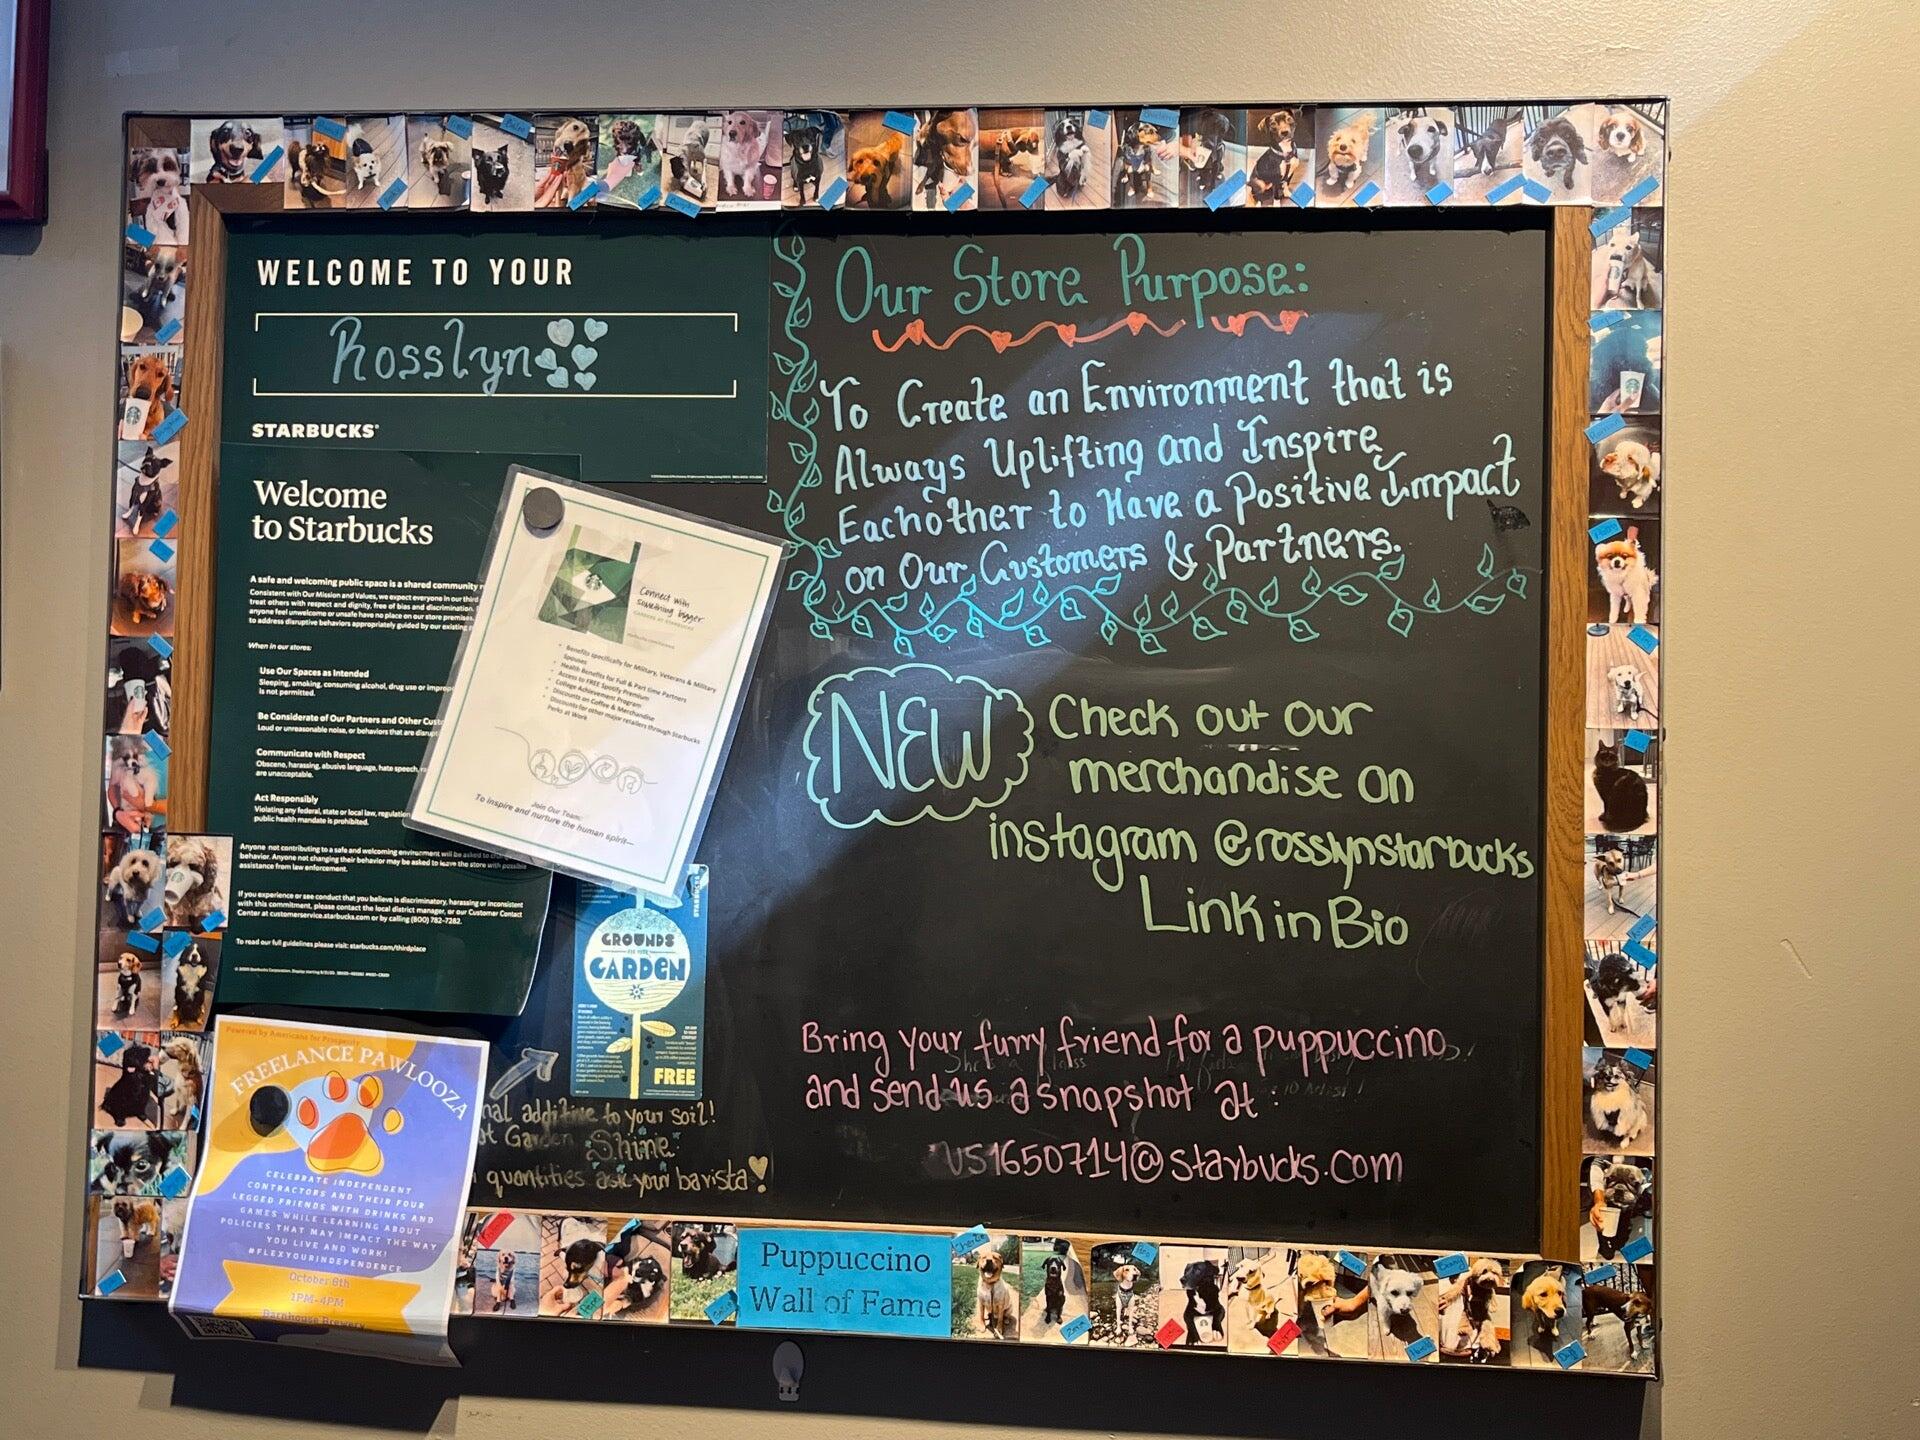 WELCOME TO YOUR
Rosslyn
STARBUCKS®
Welcome
to Starbucks
A safe and welcoming public space is a shared community
Consistent with Our Mission and Values, we expect everyone in our third
treat others with respect and dignity, free of bias and discrimination.
anyone feel unwelcome or unsafe have no place on our store premises.
to address disruptive behaviors appropriately guided by our existing
When in our stores:
Use Our Spaces as Intended
Sleeping, smoking, consuming alcohol, drug use or
is not permitted.
Be Considerate of Our Partners and Other
Loud or unreasonable noise, or behaviors that are
Communicate with Respect
Obscene, harassing, abusive language, hate speech,
are unacceptable.
Act Responsibly
Violating any federal, state or local law, regulation
public health mandate is prohibited.
Anyone not contributing to a safe and welcoming environment will be asked to
behavior. Anyone not changing their behavior may be asked to leave the store with possible
assistance from law enforcement.
If you experience or see conduct that you believe is discriminatory, harassing or inconsistent
with this commitment, please contact the local district manager, or our Customer Contact
Center at customerservice.starbucks.com or by calling (800) 782-7282.
To read our full guidelines please visit: starbucks.com/thirdplace
Connect with
something bigger
CAREERS AT STARBUCKS
• Benefits specifically for Military, Veterans & Military
Spouses
• Health Benefits for Full & Part time Partners
• Access to FREE Spotify Premium
• College Achievement Program
• Discounts on Coffee & Merchandise
• Discounts for other major retailers through Starbucks
Perks at Work
Join Our Team:
To inspire and nurture the human spirit—
STARBUCKS
GROUNDS
FOR YOUR
GARDEN
FREE
nal additive to your soil!
at Garden Shine.
quantities ask your barista!
Powered by Americans for Prosperity
FREELANCE PAWLOOZA
CELEBRATE INDEPENDENT
CONTRACTORS AND THEIR FOUR
LEGGED FRIENDS WITH DRINKS AND
GAMES WHILE LEARNING ABOUT
POLICIES THAT MAY IMPACT THE WAY
YOU LIVE AND WORK!
#FLEXYOURINDEPENDENCE
October 8th
1PM-4PM
Barnhouse Brewery
Our Store Purpose:
To Create an Environment that is
Always Uplifting and Inspire
Eachother to Have a Positive Impact
on Our Customers & Partners.
NEW
Check out our
merchandise on
instagram @rosslynstarbucks
Link in Bio
Bring your furry friend for a puppuccino
and send us a snapshot at:
US1650714@starbucks.com
Puppuccino
Wall of Fame